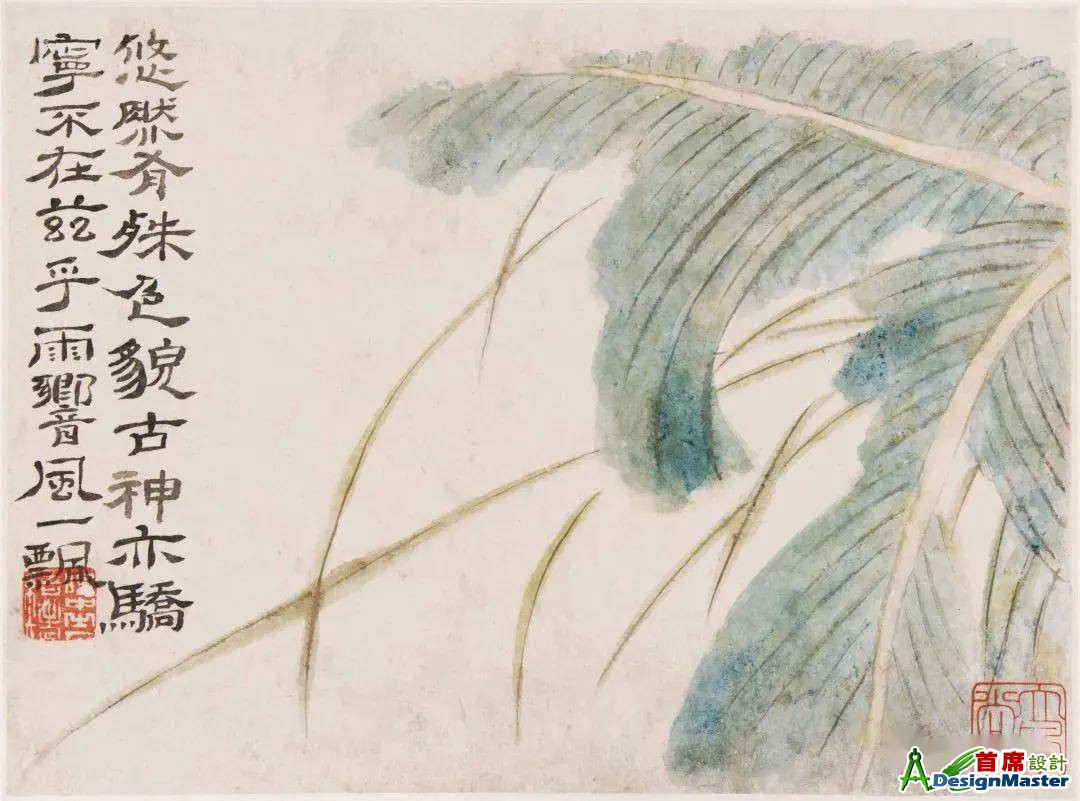 悠然有殊色貌古神亦驕
寧不在茲乎雨響風一飄
首席設計
DesignMaster